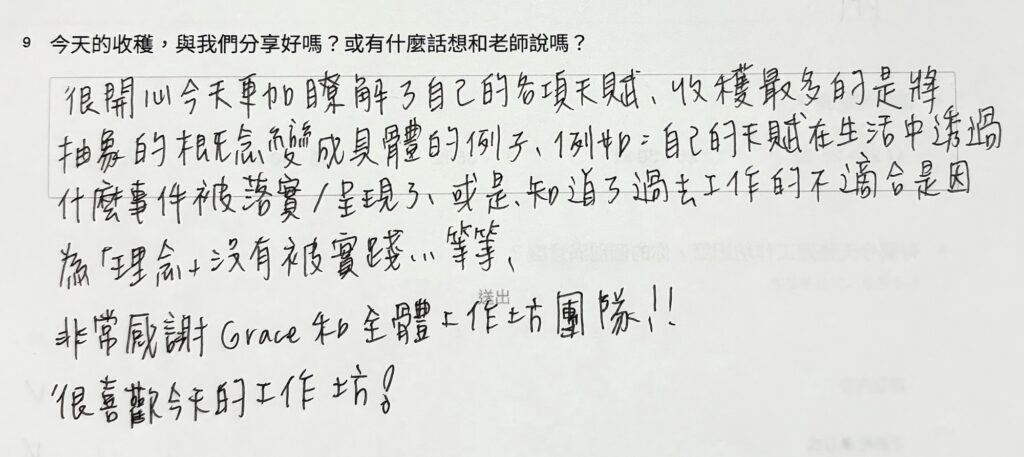 9 今天的收穫，與我們分享好嗎？或有什麼話想和老師說嗎？
很開心今天更加瞭解了自己的各項天賦、收穫最多的是將
抽象的概念變成具體的例子、例如：自己的天賦在生活中透過
什麼事件被落實/呈現了、或是、知道了過去工作的不適合是因
為「理念」沒有被實踐...等等、
送出
非常感謝Grace和全體工作坊團隊!!
很喜歡今天的工作坊!